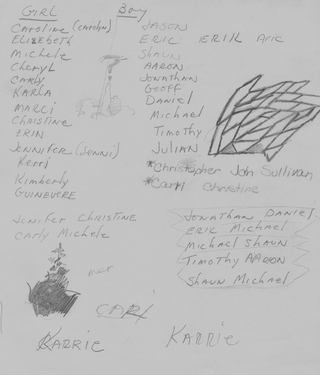 GIRL
Caroline (Carolyn)
ELIZEBETH
Michele
CHERYL
CARLY
KARLA
MARCI
CHRISTINE
ERIN
JENNIFER (JENNI)
Kerri
Kimberly
GUINEVERE
JENIFER CHRISTINE
CARLY Michele
CARI
KARRIE
Boy
JASON
ERIC ERIK Aric
SHAUN
AARON
JONATHAN
GEOFF
DANIEL
Michael
TIMOTHY
JULIAN
*Christopher John Sullivan
*Caryl Christine
JONATHAN DANIEL
ERIC Michael
Michael SHAUN
TIMOTHY AARON
SHAUN Michael
KARRIE